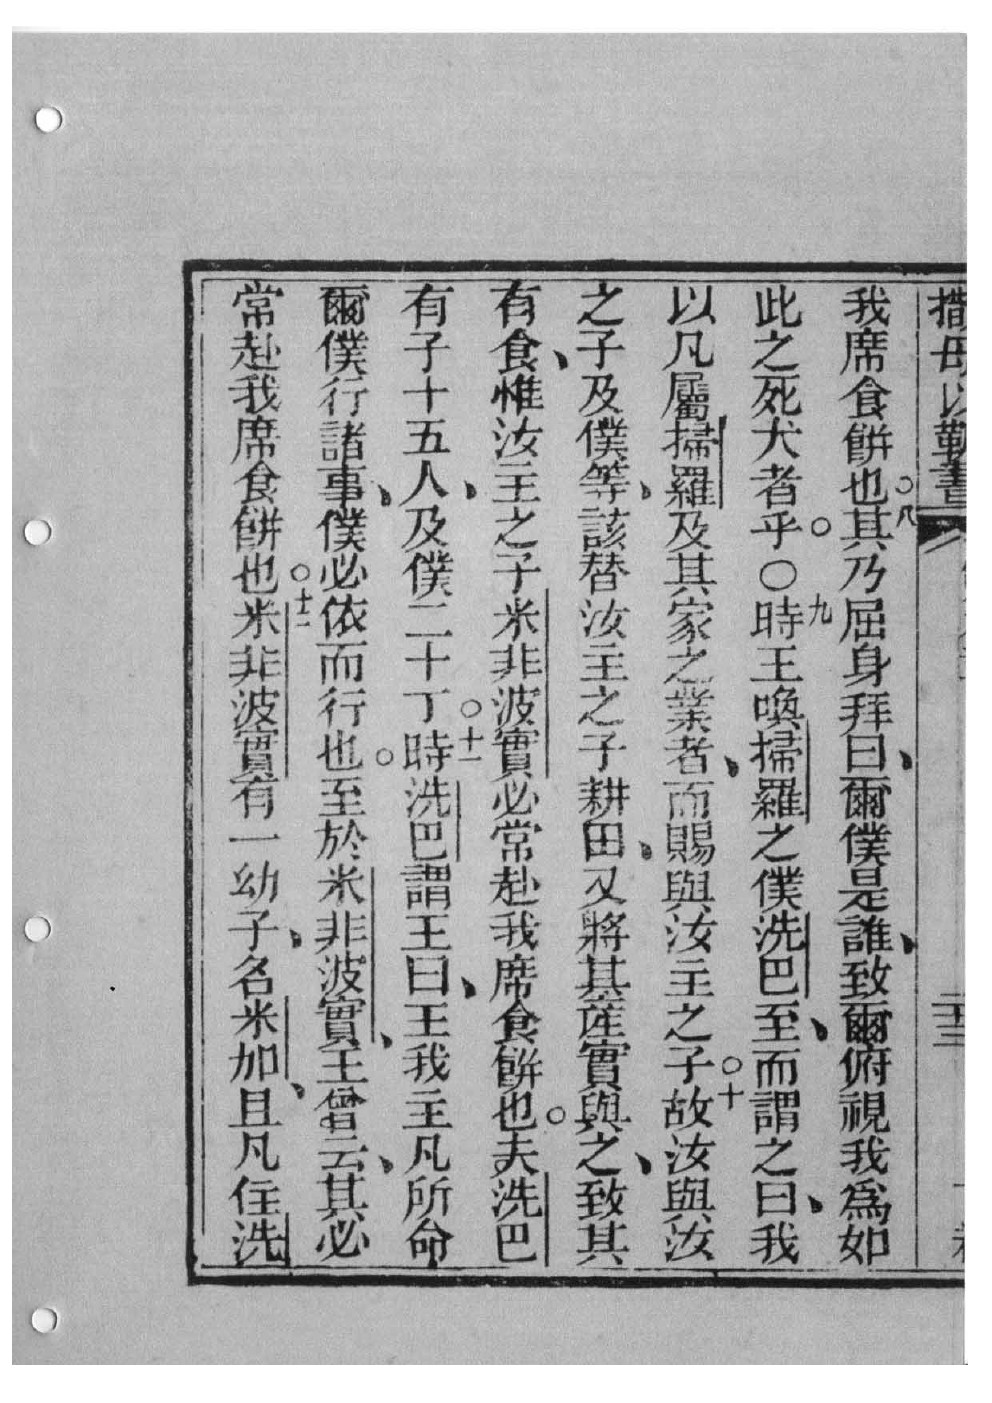 撒母以勒書
我席食餅也○八其乃屈身拜曰、爾僕是誰、致爾俯視我爲如
此之死犬者乎○〇九時王喚掃羅之僕洗巴至、而謂之曰、我
以凡屬掃羅及其家之業者、而賜與汝主之子○十故汝與汝
之子及僕等、該替汝主之子耕田、又將其產實與之、致其
有食、惟汝主之子米非波實必常赴我席食餅也○夫洗巴
有子十五人、及僕二十丁○十一時洗巴謂王曰、王我主凡所命
爾僕行諸事、僕必依而行也○至於米非波實、王曾云、其必
常赴我席食餅也○十二米非波實有一幼子、名米加、且凡住洗